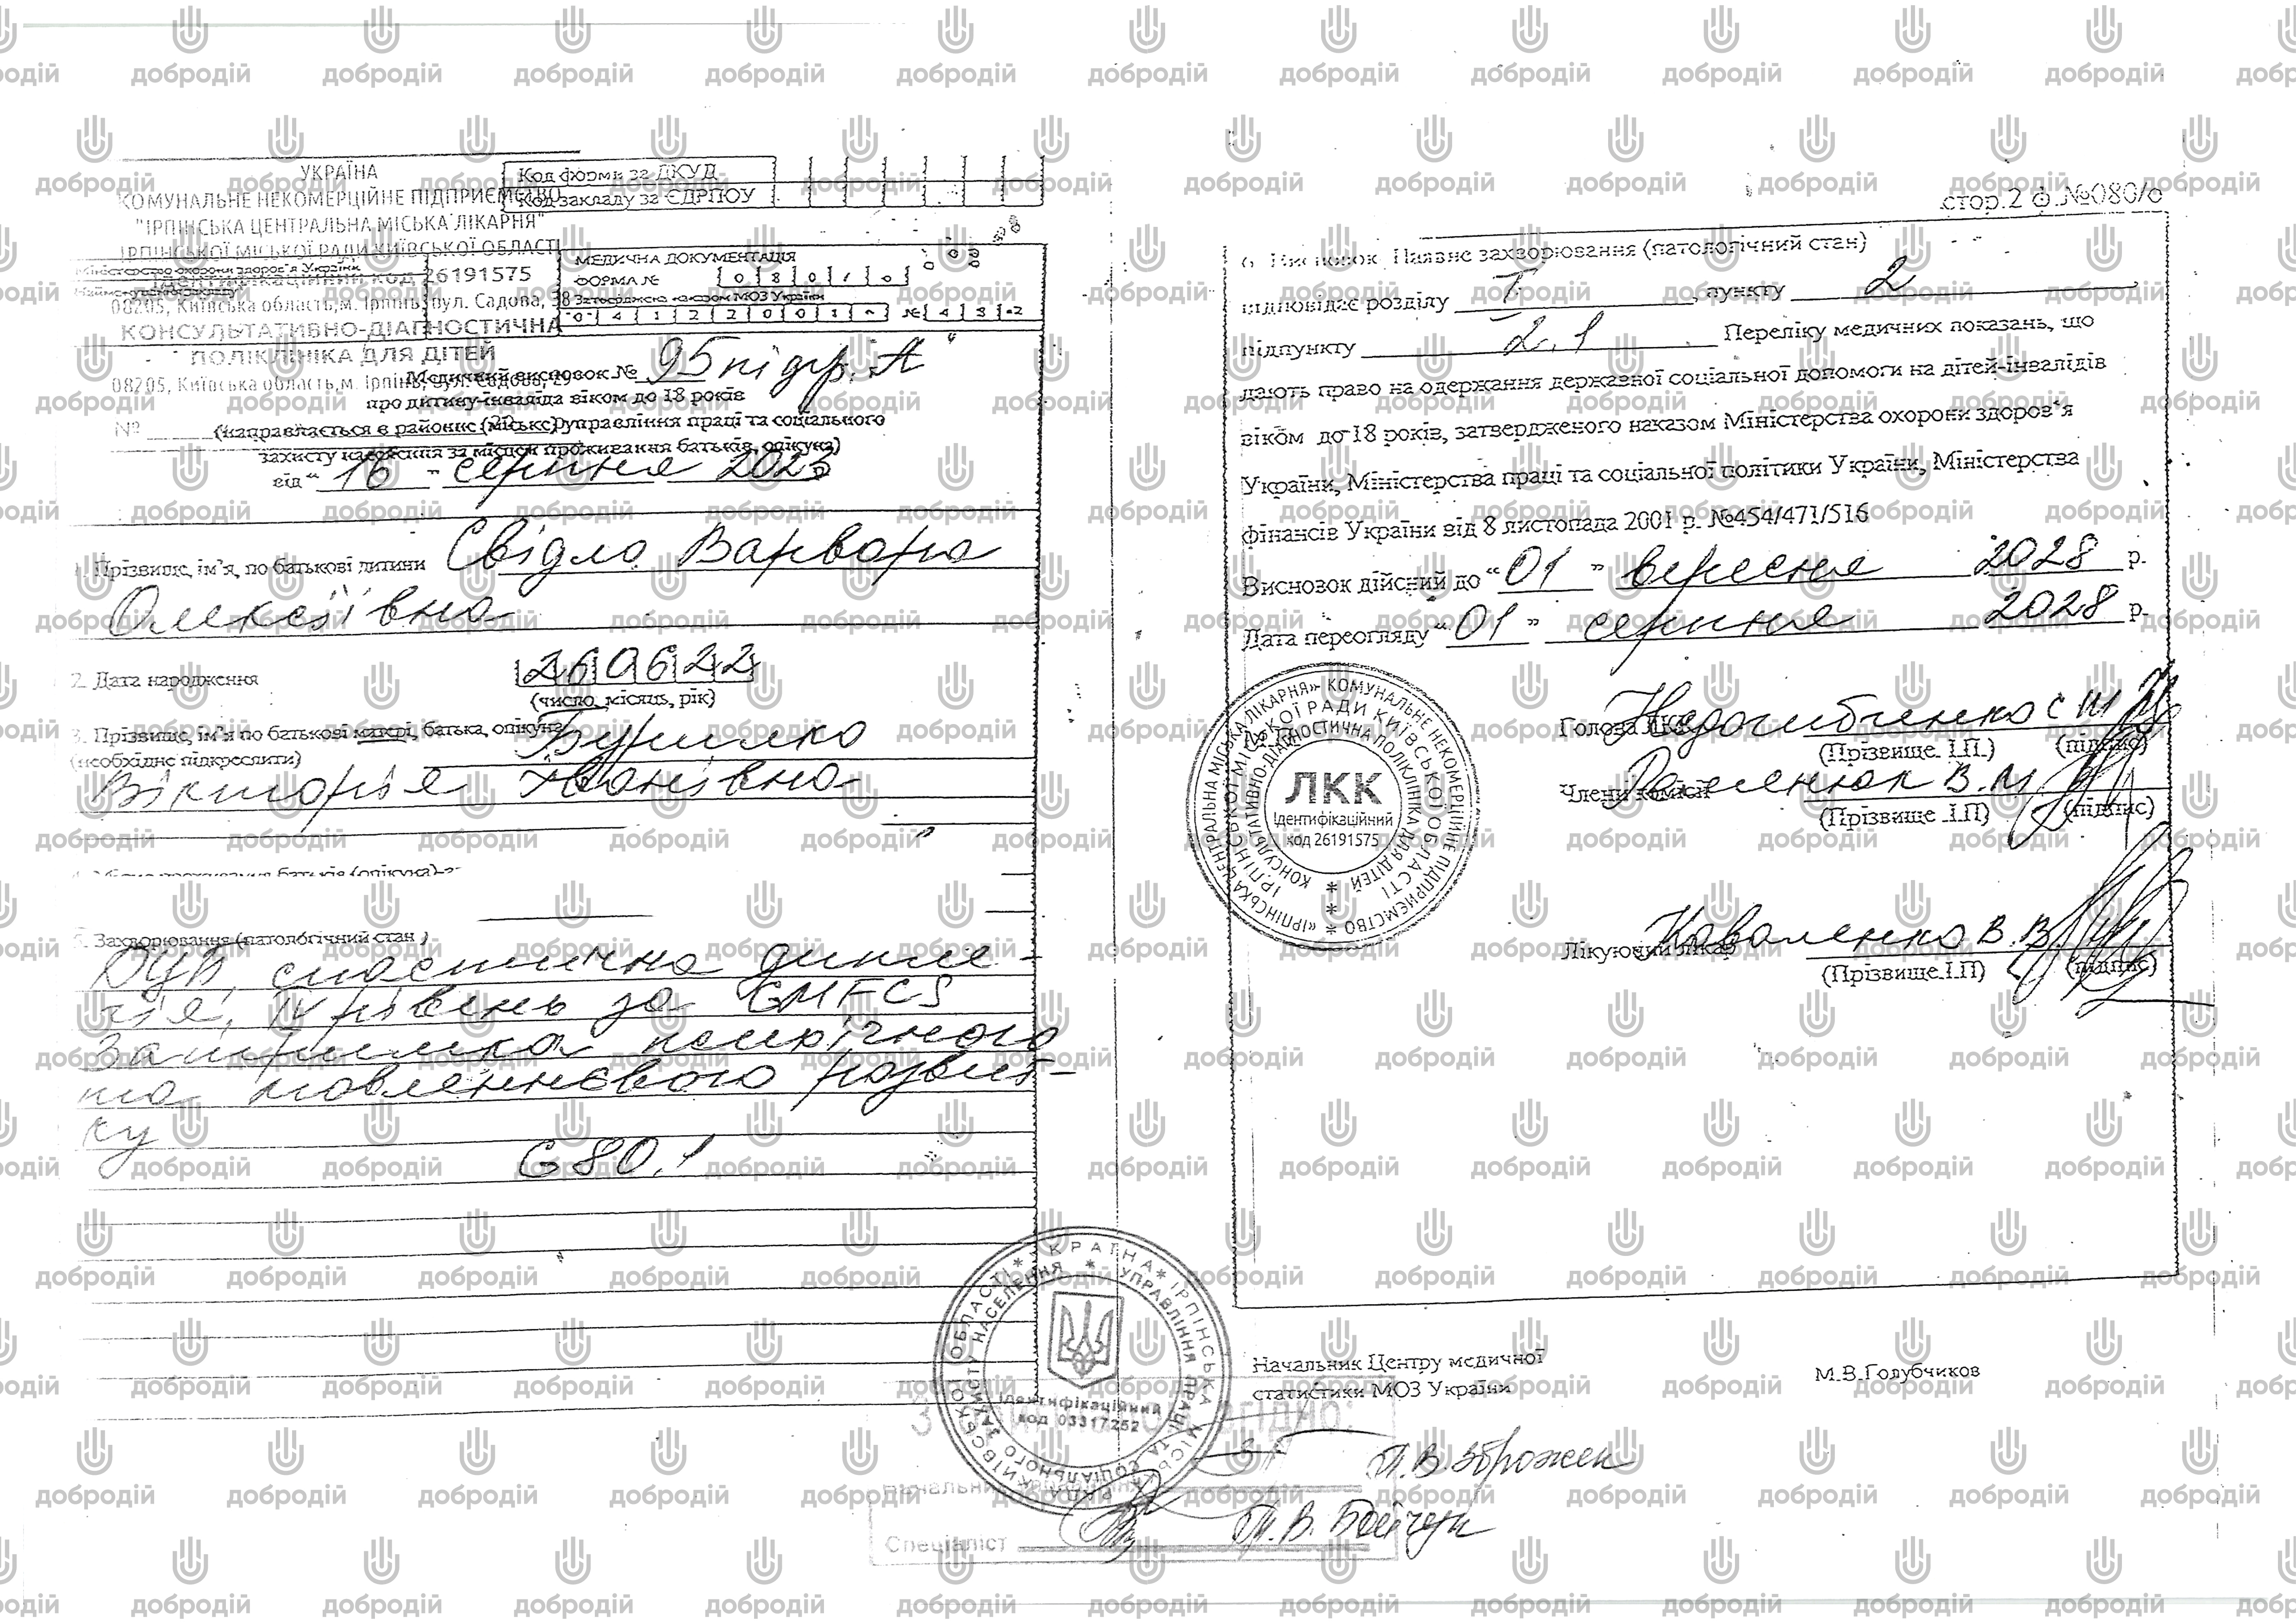 УКРАЇНА
КОМУНАЛЬНЕ НЕКОМЕРЦІЙНЕ ПІДПРИЄМСТВО
"ІРПІНСЬКА ЦЕНТРАЛЬНА МІСЬКА ЛІКАРНЯ"
ІРПІНСЬКОЇ МІСЬКОЇ РАДИ КИЇВСЬКОЇ ОБЛАСТІ
Міністерство охорони здоров'я України
ідентифікаційний код 26191575
Найменування закладу
08205, Київська область, м. Ірпінь, вул. Садова, 38
КОНСУЛЬТАТИВНО-ДІАГНОСТИЧНА
ПОЛІКЛІНІКА ДЛЯ ДІТЕЙ
08205, Київська область, м. Ірпінь, вул. Садова, 29
№
Код форми за ДКУД
Код закладу за ЄДРПОУ
МЕДИЧНА ДОКУМЕНТАЦІЯ
ФОРМА № 0 8 0 / о
Затверджена наказом МОЗ України
0 4 1 2 2 0 0 1 № 4 8
Медичний висновок № 95 підгр. А
про дитину-інваліда віком до 18 років
(направляється в районне (міське) управління праці та соціального
захисту населення за місцем проживання батьків, опікуна)
від "16" серпня 2023
1. Прізвище, ім'я, по батькові дитини Свідло Варвара
Олексіївна
2. Дата народження 260622
(число, місяць, рік)
3. Прізвище, ім'я по батькові матері, батька, опікуна
(необхідне підкреслити)
Вікторія Іванівна
4. Місце проживання батьків (опікуна)
5. Захворювання (патологічний стан)
ДЦП, спастична дипле-
гія, IV рівень за GMFCS
Затримка психічного
та мовленнєвого розвит-
ку
G 80.1
стор.2 ф.№080/о
6. Висновок. Наявне захворювання (патологічний стан)
відповідає розділу I, пункту 2
підпункту 2.1 Переліку медичних показань, що
дають право на одержання державної соціальної допомоги на дітей-інвалідів
віком до 18 років, затвердженого наказом Міністерства охорони здоров'я
України, Міністерства праці та соціальної політики України, Міністерства
фінансів України від 8 листопада 2001 р. №454/471/516
Висновок дійсний до "01" вересня 2028 р.
Дата переогляду "01" серпня 2028 р.
Голова ЛКК
(Прізвище. І.П.) (підпис)
Члени комісії В.М.
(Прізвище .І.П) (підпис)
Лікуючий лікар Коваленко В.В.
(Прізвище.І.П) (підпис)
«ІРПІНСЬКА ЦЕНТРАЛЬНА МІСЬКА ЛІКАРНЯ» КОМУНАЛЬНЕ НЕКОМЕРЦІЙНЕ ПІДПРИЄМСТВО
ІРПІНСЬКОЇ МІСЬКОЇ РАДИ КИЇВСЬКОЇ ОБЛАСТІ
КОНСУЛЬТАТИВНО-ДІАГНОСТИЧНА ПОЛІКЛІНІКА ДЛЯ ДІТЕЙ
ЛКК
Ідентифікаційний
код 26191575
УКРАЇНА * ІРПІНСЬКА МІСЬКА РАДА КИЇВСЬКОЇ ОБЛАСТІ
УПРАВЛІННЯ ПРАЦІ ТА СОЦІАЛЬНОГО ЗАХИСТУ НАСЕЛЕННЯ
Ідентифікаційний
код 03317252
Начальник Центру медичної
статистики МОЗ України
М.В.Голубчиков
Начальник
Спеціаліст
добродій